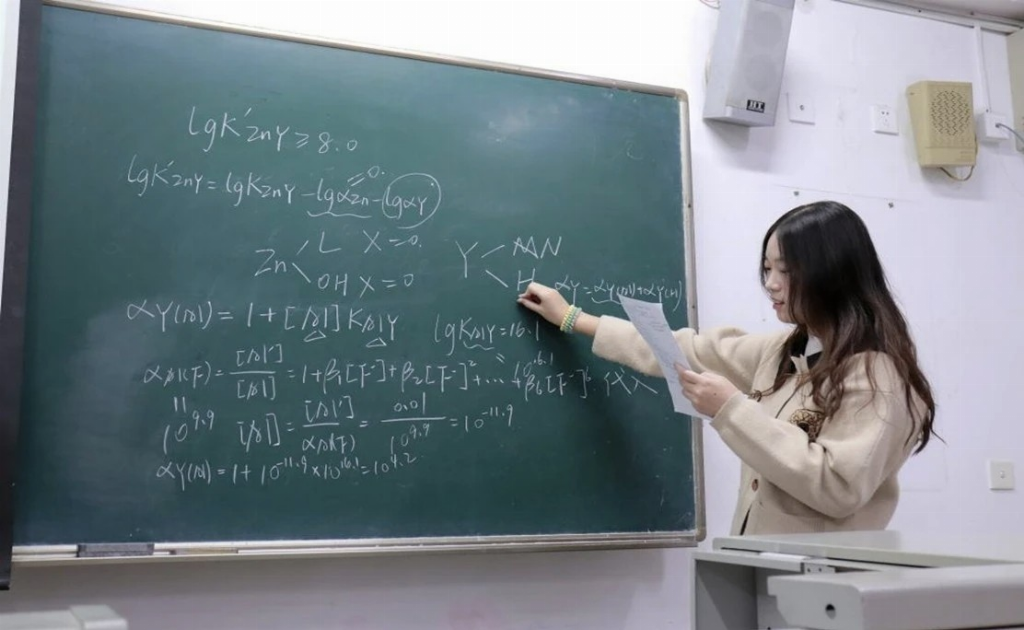 lgK'ZnY ≥ 8.0
lgK'ZnY = lgKZnY - lgαZn - lgαY
=0.
Zn L X =0.
OH X =0
Y Al N
H αY = αY(Al) + αY(H)
αY(Al) = 1 + [Al] KAlY
lgKAlY = 16.1
10^16.1
αAl(F) = [Al'] / [Al] = 1 + β1[F-] + β2[F-]^2 + ... + β6[F-]^6 代入
"
10^9.9 [Al] = [Al'] / αAl(F) = 0.01 / 10^9.9 = 10^-11.9
αY(Al) = 1 + 10^-11.9 × 10^16.1 = 10^4.2